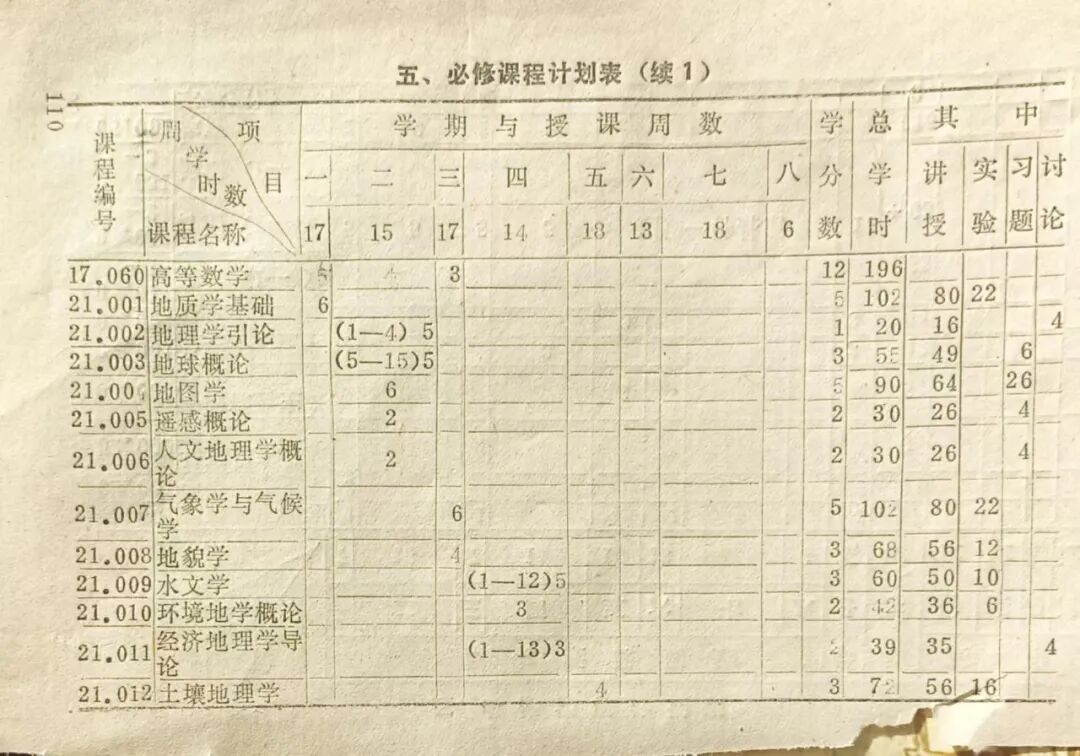 五、必修课程计划表（续1）
110
课程编号 周学时数 项目 课程名称 学期与授课周数 学分数 总学时 其中
一 二 三 四 五 六 七 八 讲授 实验 习题 讨论
17 15 17 14 18 13 18 6
17.060 高等数学 5 3 12 196
21.001 地质学基础 6 5 102 80 22
21.002 地理学引论 (1—4) 5 1 20 16 4
21.003 地球概论 (5—15)5 3 55 49 6
21.00 地图学 6 5 90 64 26
21.005 遥感概论 2 2 30 26 4
21.006 人文地理学概论 2 2 30 26 4
21.007 气象学与气候学 6 5 102 80 22
21.008 地貌学 4 3 68 56 12
21.009 水文学 (1—12)5 3 60 50 10
21.010 环境地学概论 3 2 42 36 6
21.011 经济地理学导论 (1—13)3 2 39 35 4
21.012 土壤地理学 4 3 72 56 16